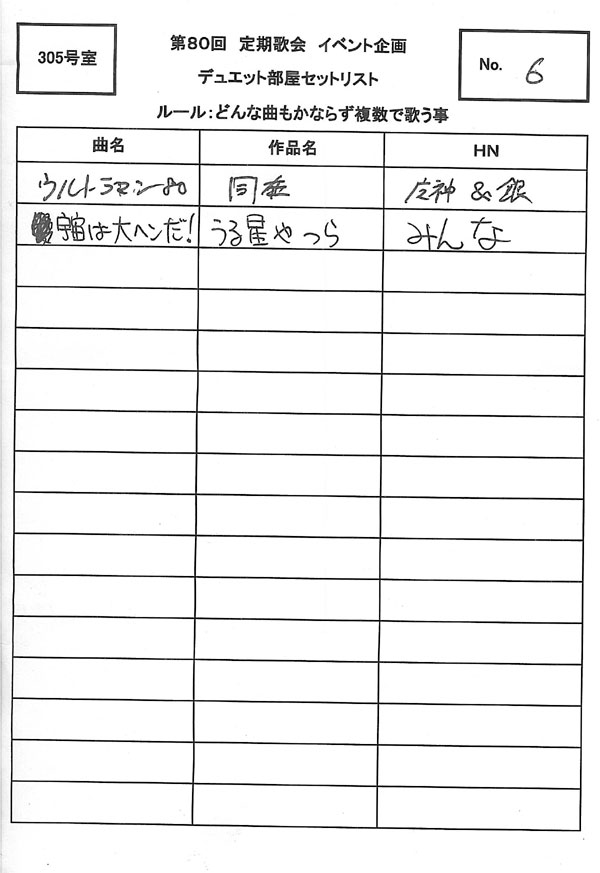 305号室
第80回 定期歌会 イベント企画
No. 6
デュエット部屋セットリスト
ルール:どんな曲もかならず複数で歌う事
曲名 作品名 HN
ウルトラマン80 同 &銀
宇宙は大ヘンだ! うる星やつら みんな